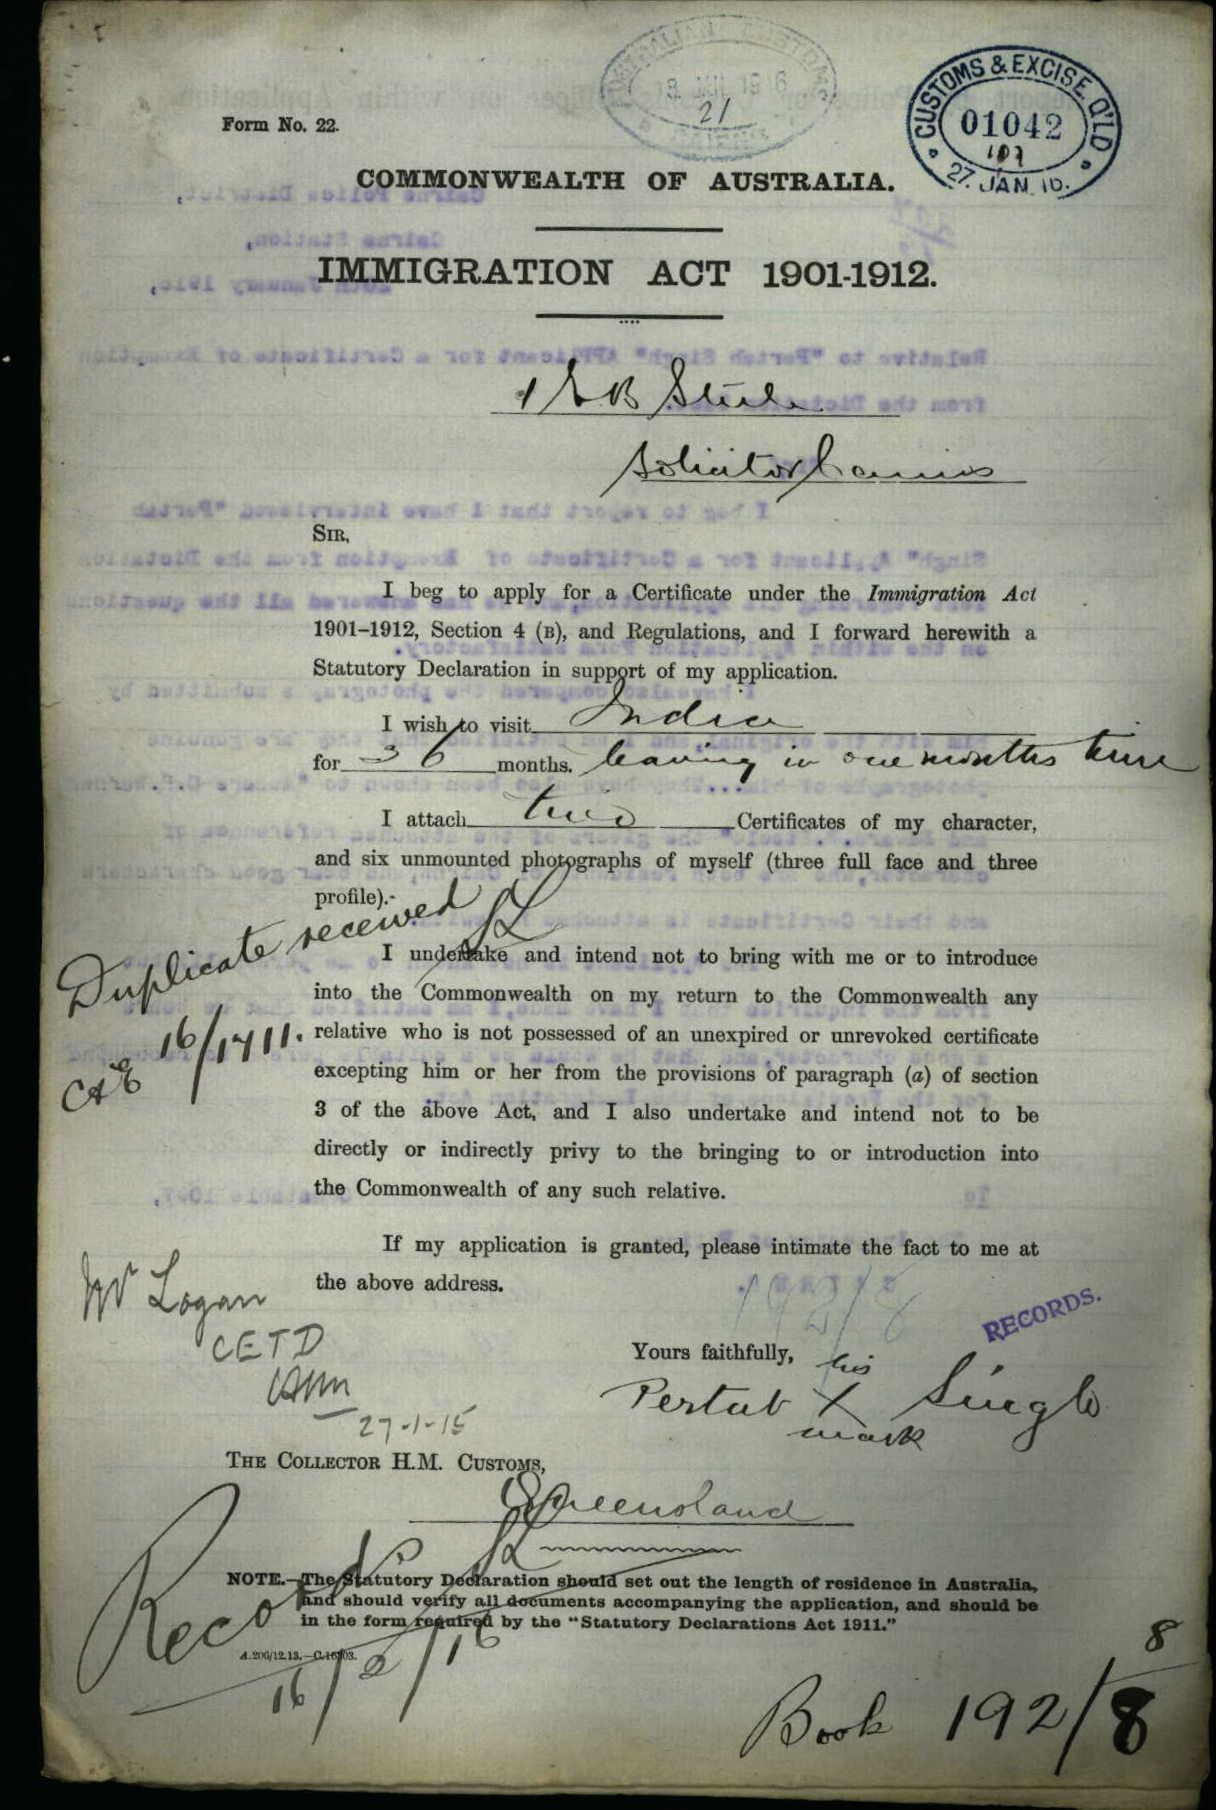 Form No. 22.
CUSTOMS & EXCISE. Q'LD
01042
27. JAN. 16.
21
COMMONWEALTH OF AUSTRALIA.
IMMIGRATION ACT 1901-1912.
Solicitor Cairns
SIR,
I beg to apply for a Certificate under the Immigration Act
1901-1912, Section 4 (B), and Regulations, and I forward herewith a
Statutory Declaration in support of my application.
I wish to visit India
for 36 months. leaving in one months time
I attach two Certificates of my character,
and six unmounted photographs of myself (three full face and three
profile).
Duplicate received
I undertake and intend not to bring with me or to introduce
into the Commonwealth on my return to the Commonwealth any
relative who is not possessed of an unexpired or unrevoked certificate
C&E 16/1711.
excepting him or her from the provisions of paragraph (a) of section
3 of the above Act, and I also undertake and intend not to be
directly or indirectly privy to the bringing to or introduction into
the Commonwealth of any such relative.
If my application is granted, please intimate the fact to me at
the above address.
Mr Logan
CETD
27-1-15
192/8
RECORDS.
Yours faithfully,
Pertab his X mark Singh
THE COLLECTOR H.M. CUSTOMS,
Queensland
NOTE.—The Statutory Declaration should set out the length of residence in Australia,
and should verify all documents accompanying the application, and should be
in the form required by the “Statutory Declarations Act 1911.”
Records
16/2/16
8
Book 192/8